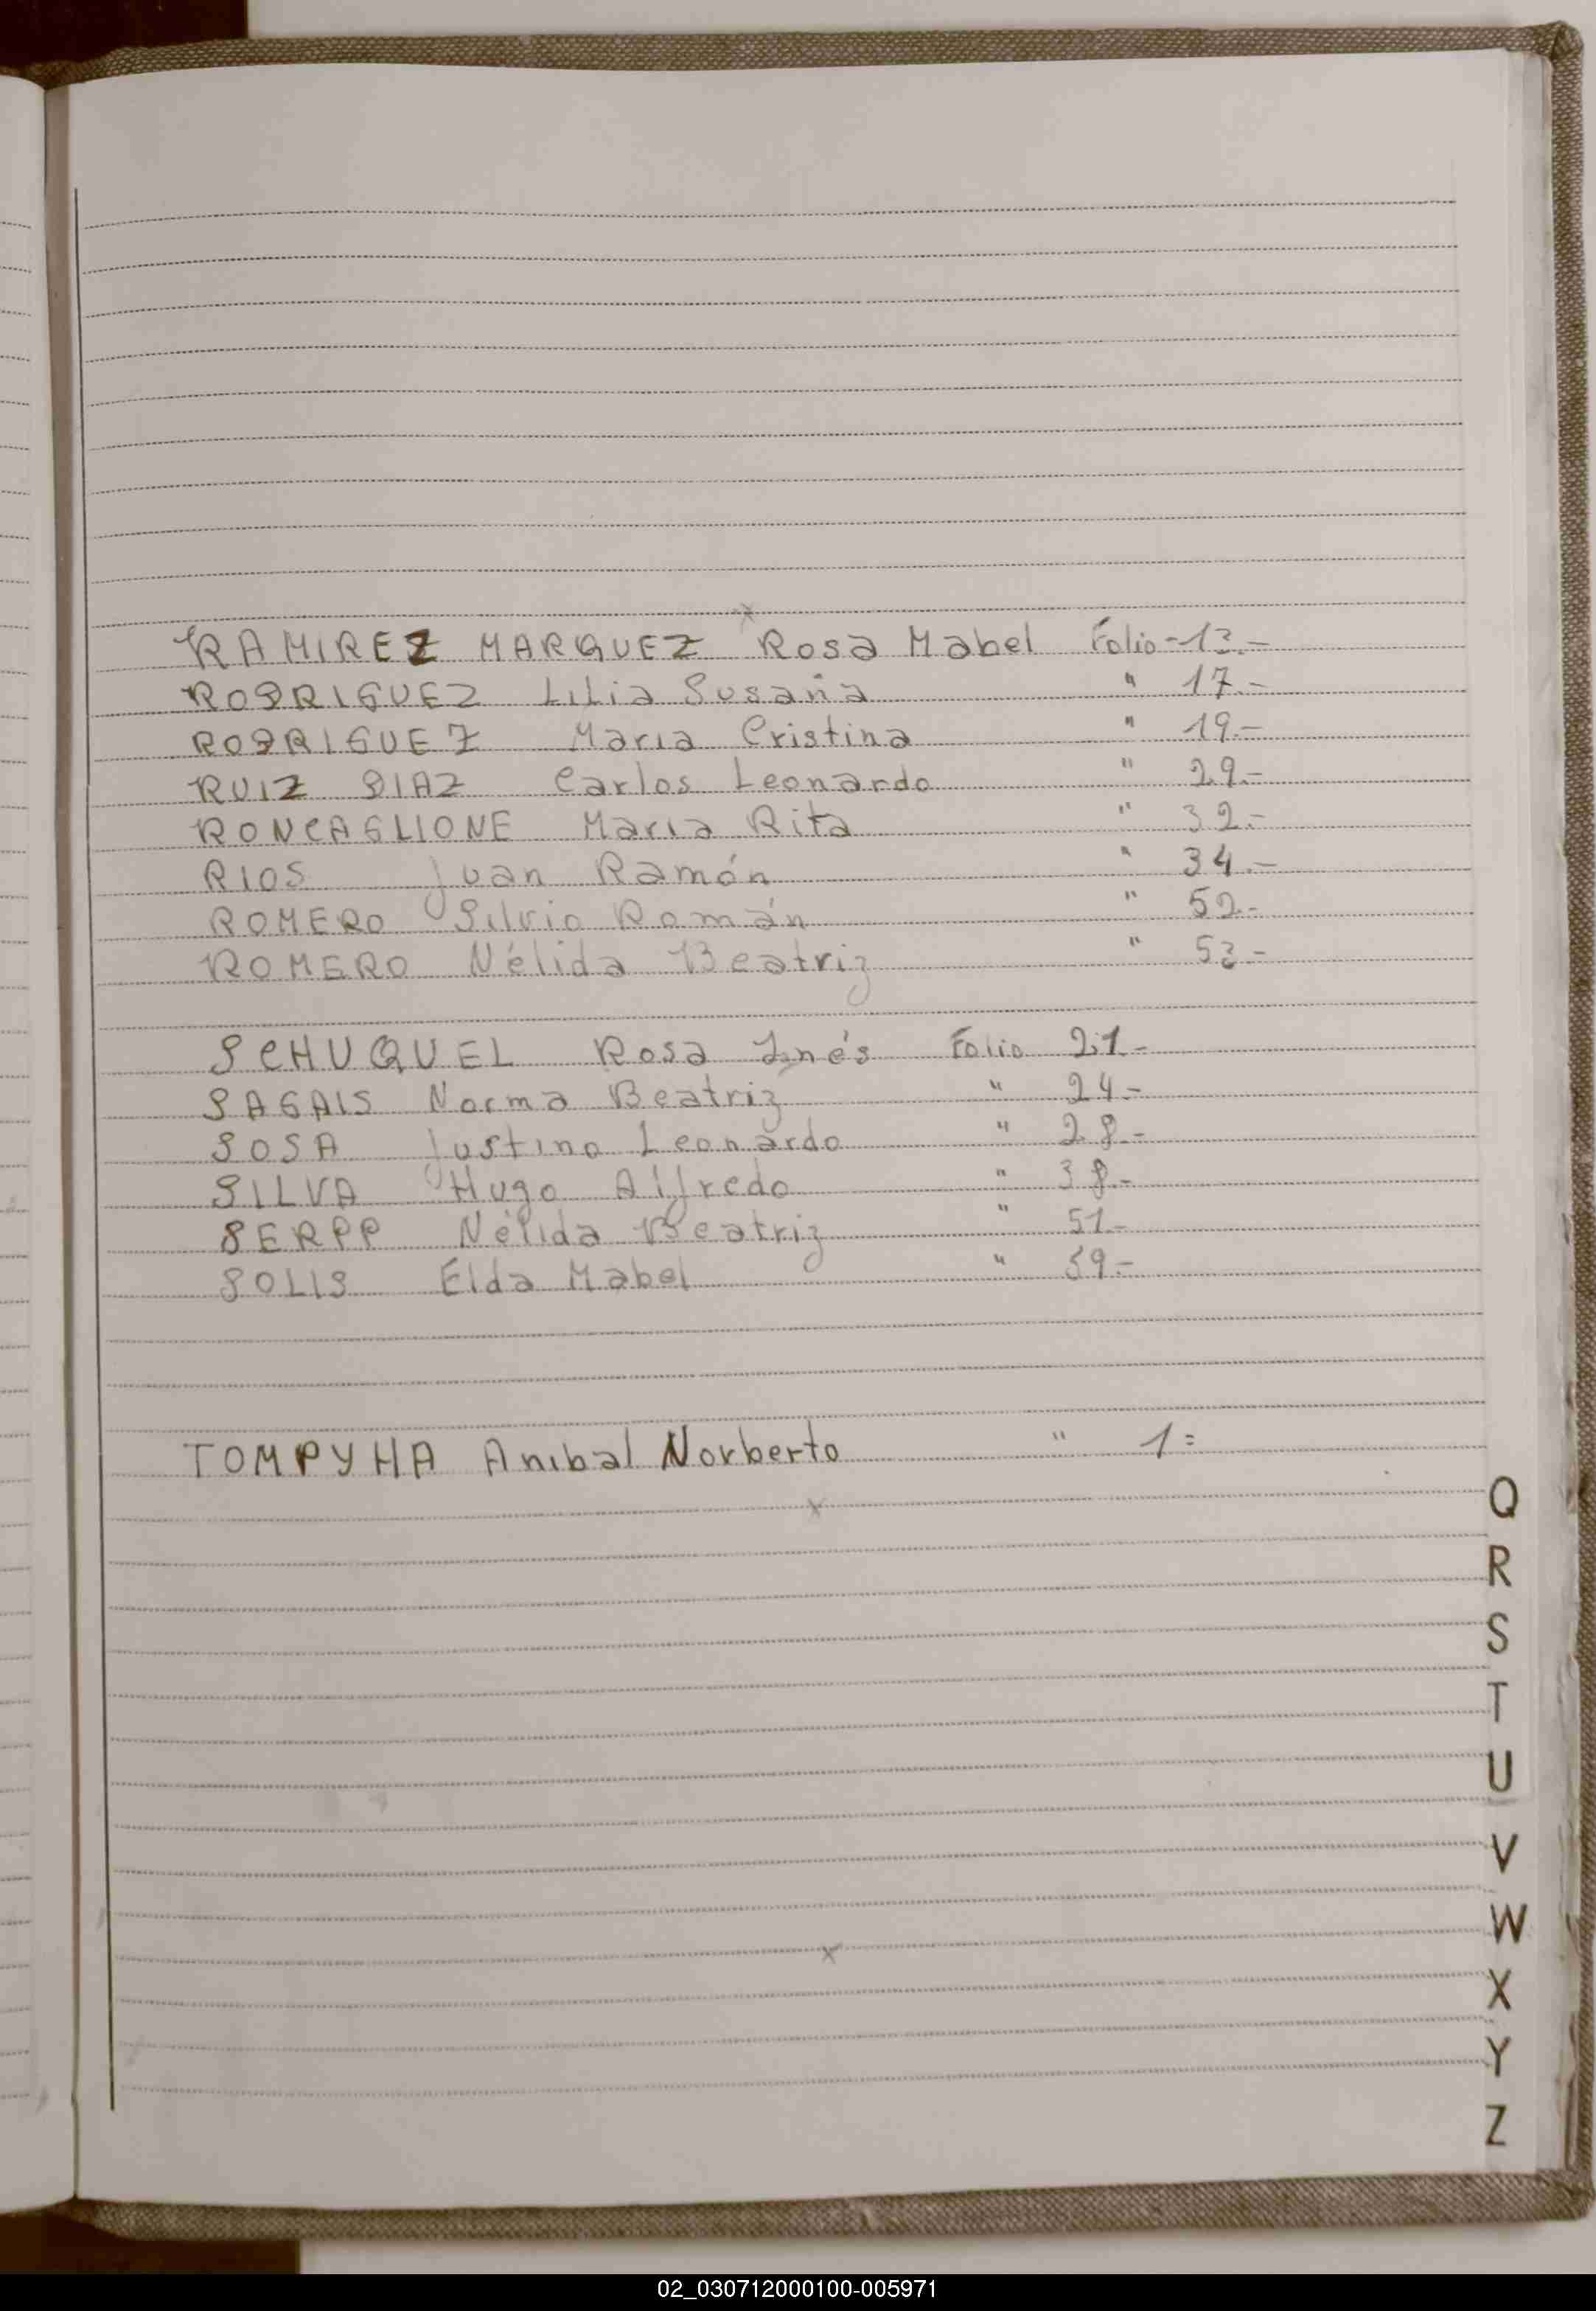 RAMIREZ MARQUEZ Rosa Mabel Folio - 13.-
RODRIGUEZ Lilia Susana " 17.-
RODRIGUEZ Maria Cristina " 19.-
RUIZ DIAZ Carlos Leonardo " 29.-
RONCAGLIONE Maria Rita " 32.-
RIOS Juan Ramón " 34.-
ROMERO Silvio Román " 52.-
ROMERO Nélida Beatriz " 53.-
SCHUQUEL Rosa Inés Folio 21.-
SAGAIS Norma Beatriz " 24.-
SOSA Justino Leonardo " 28.-
SILVA Hugo Alfredo " 38.-
SERPP Nélida Beatriz " 51.-
SOLIS Elda Mabel " 59.-
TOMPYHA Anibal Norberto " 1=
Q
R
S
T
U
V
W
X
Y
Z
02_030712000100-005971